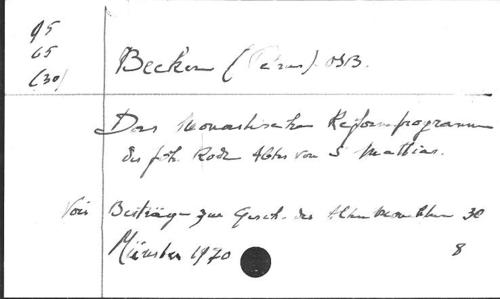 95
65
(30)
Becker (Petrus) OSB.
Das monastische Reformprogramm
des Joh. Rode Abtes von S. Matthias.
Voir Beiträge zur Gesch. des Alten Mönchtums 30
Münster 1970
8